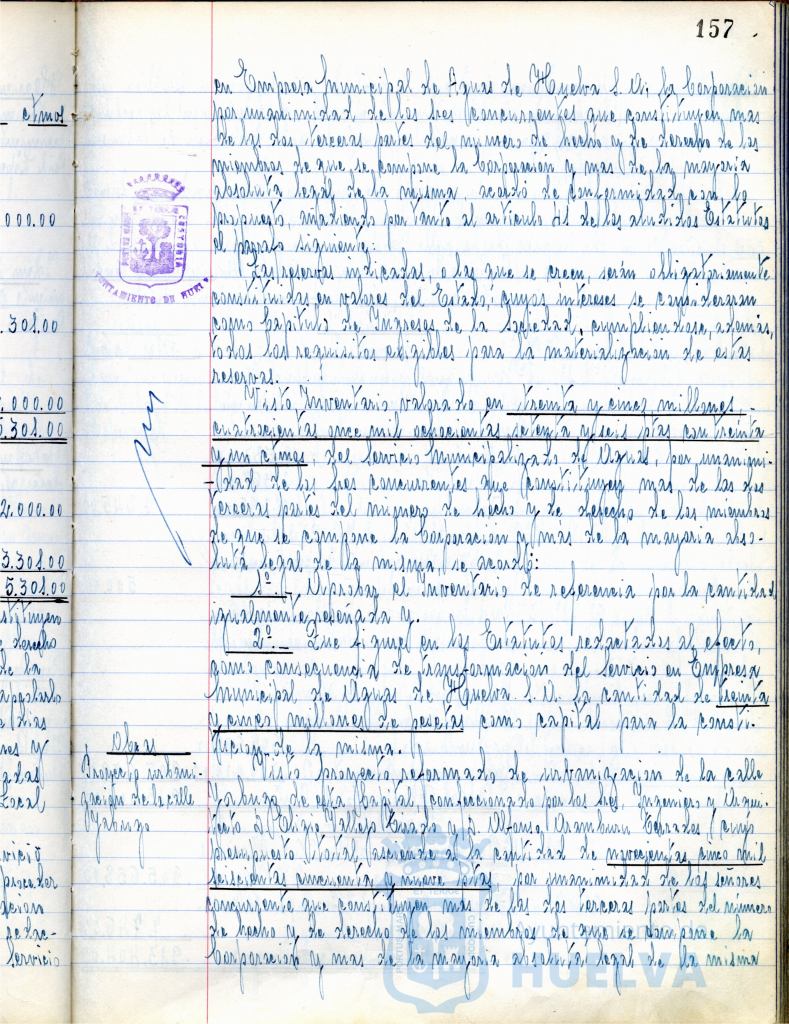 157
en Empresa Municipal de Aguas de Huelva S.A. la Corporacion
por unanimidad de los sres concurrentes que constituyen mas
de las dos terceras partes del número de hecho y de derecho de los
miembros de que se compone la Corporación y mas de la mayoria
absoluta legal de la misma acordó de conformidad con lo
propuesto, añadiendo por tanto al articulo de los aludidos Estatutos
el parrafo siguiente:
Las reservas indicadas, o las que se creen, serán obligatoriamente
constituidas en valores del Estado, cuyos intereses se consideraran
como Capitulo de Ingresos de la Sociedad, cumpliendose, además,
todos los requisitos exigibles para la materializacion de estas
reservas.
Visto Inventario valorado en treinta y cinco millones
cuatrocientas once mil ochocientas setenta y seis ptas con treinta
y un ctmos, del Servicio Municipalizado de Aguas, por unanimi-
dad de los sres concurrentes, que constituyen mas de las dos
terceras partes del número de hecho y de derecho de los miembros
de que se compone la Corporacion y mas de la mayoria abso-
luta legal de la misma, se acordó:
1º.- Aprobar el Inventario de referencia por la cantidad
igualmente reseñada y.
2º.- Que figure en los Estatutos redactados al efecto,
como consecuencia de transformacion del Servicio en Empresa
Municipal de Aguas de Huelva S.A. la cantidad de treinta
y cinco millones de pesetas como capital para la consti-
tucion de la misma.
Obras
Proyecto urbani-
zacion de la calle
Yabugo
Visto proyecto reformado de urbanizacion de la calle
Yabugo de esta Capital, confeccionado por los sres. Ingeniero y Arqui-
tecto D. Eligio Vallejo y D. Alfonso Aramburu Terrades, cuyo
presupuesto total asciende a la cantidad de novecientas cinco mil
seiscientas cincuenta y nueve ptas, por unanimidad de los señores
concurrente que constituyen mas de las dos terceras partes del número
de hecho y de derecho de los miembros de que se compone la
Corporación y mas de la mayoria absoluta legal de la misma
ctmos
000.00
.301.00
.000.00
5.301.00
2.000.00
3.301.00
5.301.00
stituyen
derecho
de la
dias
res y
Local
rvicio
proceder
acion
redac-
Servicio
AYUNTAMIENTO DE HUELVA
HUELVA